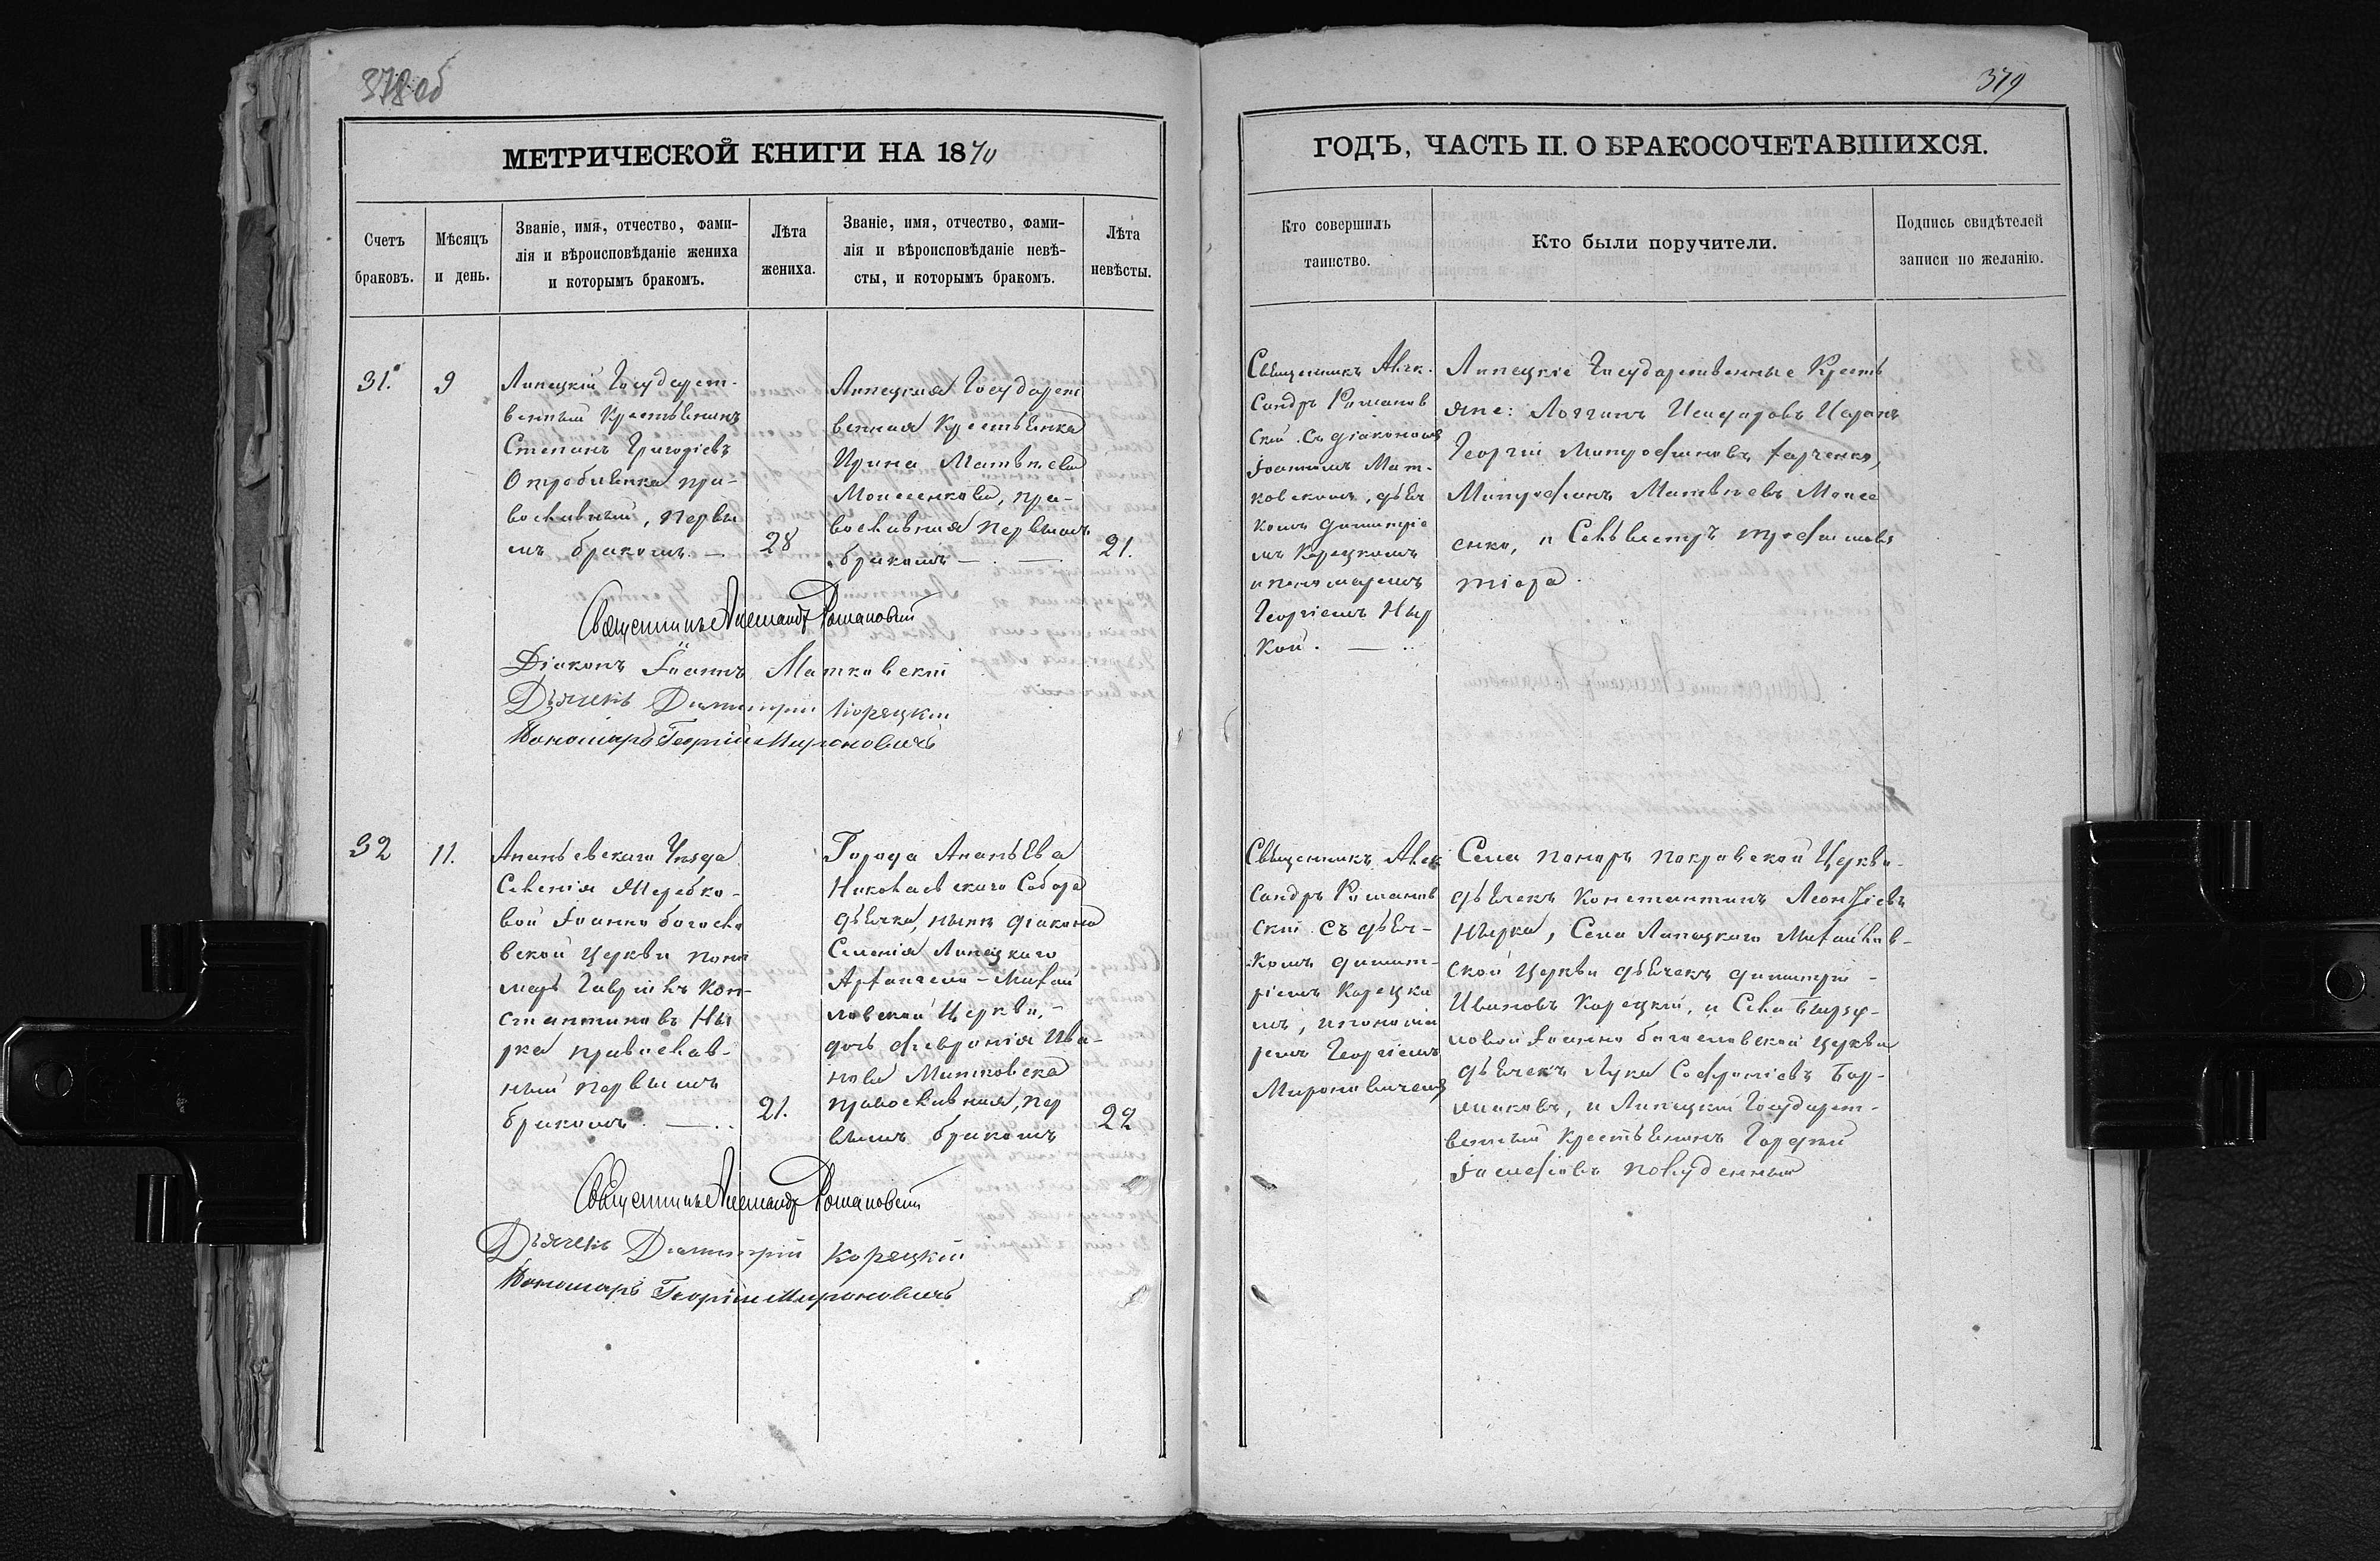 378 об
МЕТРИЧЕСКОЙ КНИГИ НА 1870
Счетъ браковъ.
Мѣсяцъ и день.
Званіе, имя, отчество, фами-
лія и вѣроисповѣданіе жениха
и которымъ бракомъ.
Лѣта жениха.
Званіе, имя, отчество, фами-
лія и вѣроисповѣданіе невѣ-
сты, и которымъ бракомъ.
Лѣта невѣсты.
31.
9
Липецкій Государст-
венный Крестьянинъ
Степанъ Григоріевъ
пра-
вославный, первы
мъ бракомъ. —
28
Липецкая Государст
венная Крестьянка
Ирина Матѣеева
Моисеенкова, пра-
вославная первымъ
бракомъ —
21.
Священникъ Александръ Романовскій
Діаконъ Іоаннъ Матковскій
Дьячекъ Димитрій Корецкій
Пономарь Георгій Мироновичъ
32
11.
Ананьевскаго Уѣзда
Селенія Жеребко-
вой Іоанно богосло
вской Церкви поно
марь Гавріилъ Кон-
стантиновъ Ны
рка православ-
ный первымъ
бракомъ. —
21.
Города Ананьева
Николаевскаго Собора
дьячка, нынѣ діакона
Селенія Липецкаго
Архангело-Михаи
ловской Церкви, -
дочь Февронія Ива-
нова Матковская
православная, пер
вымъ бракомъ
22
Священникъ Александръ Романовскій
Дьячекъ Димитрій Корецкій
Пономарь Георгій Мироновичъ
379
ГОДЪ, ЧАСТЬ II. О БРАКОСОЧЕТАВШИХСЯ.
Кто совершилъ
таинство.
Кто были поручители.
Подпись свидѣтелей
записи по желанію.
Священникъ Алек.
сандръ Романов
скій съ діакономъ
Іоанномъ Мат-
ковскимъ, дьяч
комъ Димитріе
мъ Корецкимъ
и пономаремъ
Георгіемъ Ныр
кой. —
Липецкіе Государственные Кресть
яне: Логгинъ Исидоровъ
Георгій Митрофановъ Харченко,
Митрофанъ Матвѣевъ Моисе
енко, и Селивестръ
Священникъ Алек
сандръ Романов
скій съ дьяч-
комъ Димит-
ріемъ Корецки
мъ, и понома
ремъ Георгіемъ
Мироновичемъ
Села Покровской Церкви
дьячекъ Константинъ Леонтіевъ
Нырка, Села Липецкаго Михайлов-
ской Церкви дьячекъ Димитрій -
Ивановъ Корецкій, и Села Бирзу-
ловой Іоанно богословской Церкви
дьячекъ Лука Софроніевъ
и Липецкій Государст-
венный Крестьянинъ